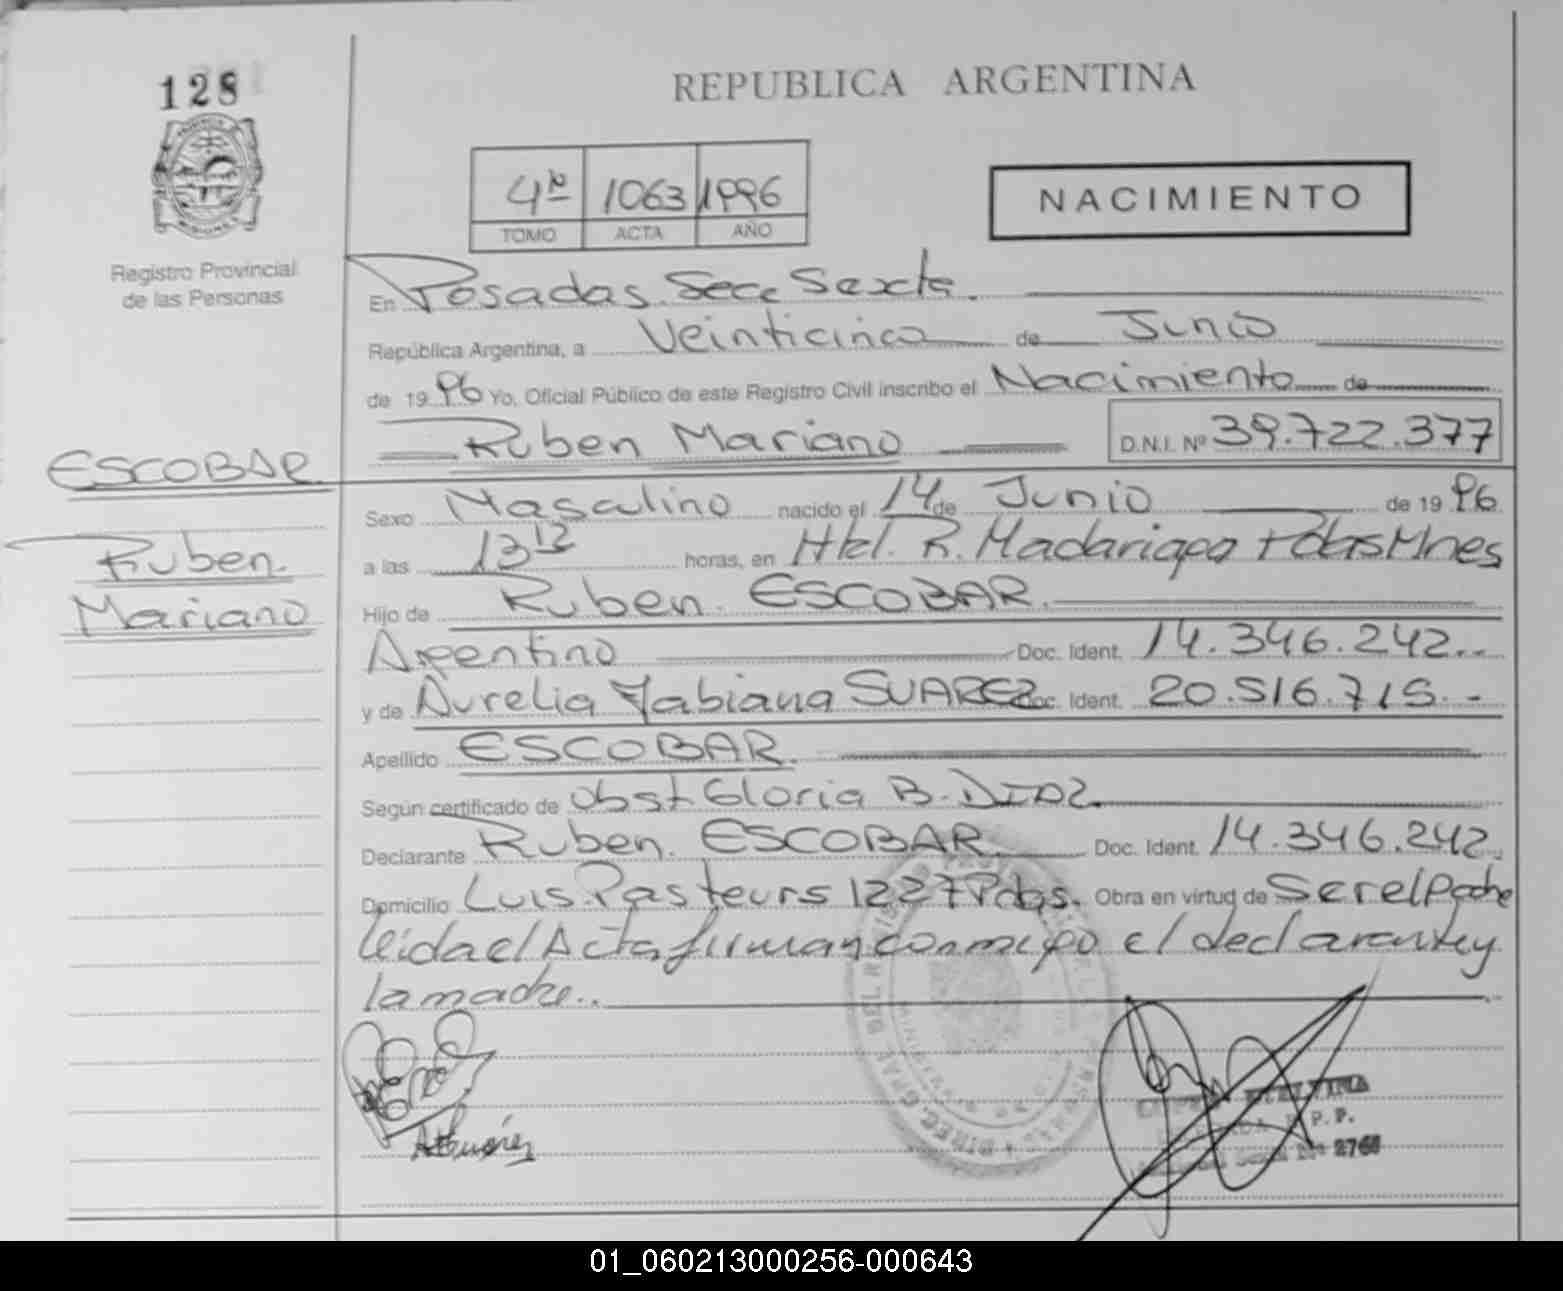 128
REPUBLICA ARGENTINA
4º 1063 1996
TOMO ACTA AÑO
NACIMIENTO
Registro Provincial
de las Personas
En Posadas Secc Sexta.
República Argentina, a Veinticinco de Junio
de 1996 Yo, Oficial Público de este Registro Civil inscribo el Nacimiento de
Ruben Mariano D.N.I. Nº 39.722.377
ESCOBAR
Ruben
Mariano
Sexo Masculino nacido el 14 de Junio de 1996
a las 13 12 horas, en Htal. R. Madariaga Pdas Mnes
Hijo de Ruben ESCOBAR.
Argentino Doc. Ident. 14.346.242..
y de Aurelia Fabiana SUAREZ Doc. Ident. 20.516.715.-
Apellido ESCOBAR.
Según certificado de Obst Gloria B. DIAZ.
Declarante Ruben. ESCOBAR. Doc. Ident. 14.346.242.
Domicilio Luis Pasteurs 1227 Pdas. Obra en virtud de Ser el Padre
leida el Acta firman conmigo el declarante y
la madre..
P.P.
2768
01_060213000256-000643